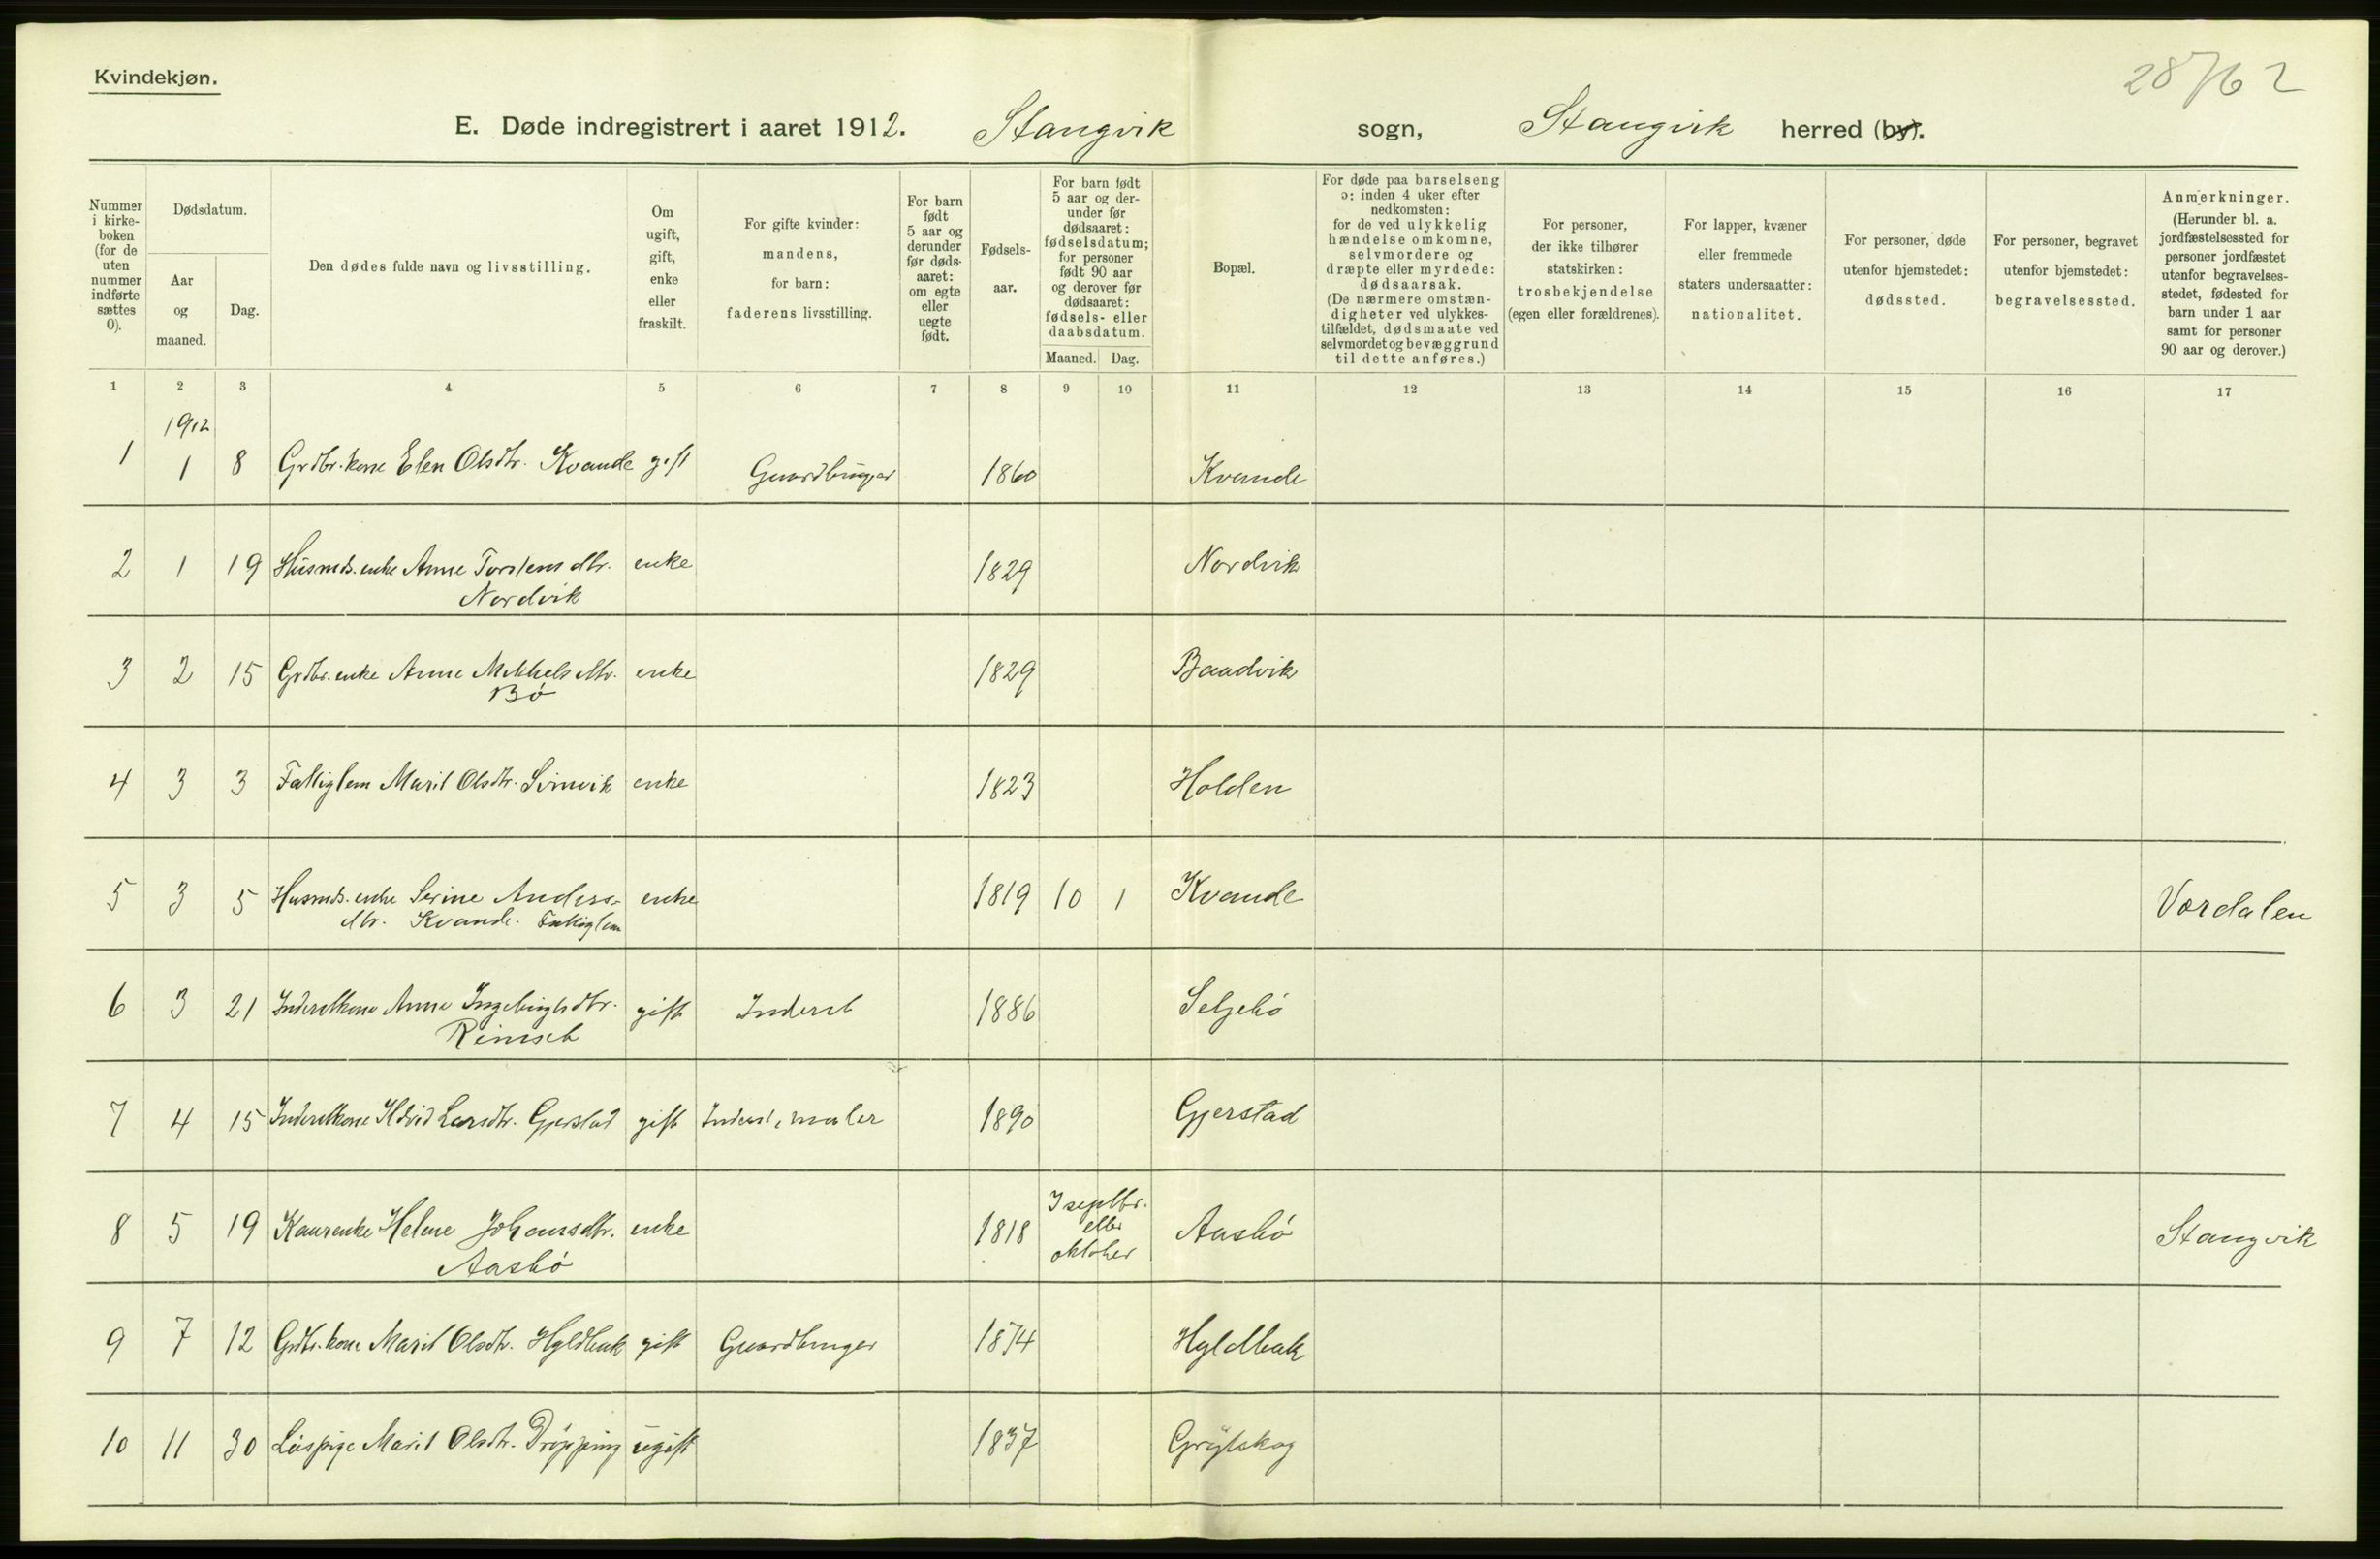 Kvindekjøn.
28762
E. Døde indregistrert i aaret 1912. Stangvik sogn, Stangvik herred (by).
Nummer i kirke- boken (for de uten nummer indførte sættes 0).
Dødsdatum.
Aar og maaned.
Dag.
Den dødes fulde navn og livsstilling.
Om ugift, gift, enke eller fraskilt.
For gifte kvinder: mandens, for barn: faderens livsstilling.
For barn født 5 aar og derunder før døds- aaret: om egte eller uegte født.
Fødsels- aar.
For barn født 5 aar og der- under før dødsaaret: fødselsdatum; for personer født 90 aar og derover før dødsaaret: fødsels- eller daabsdatum.
Maaned. Dag.
Bopæl.
For døde paa barselseng ɔ: inden 4 uker efter nedkomsten: for de ved ulykkelig hændelse omkomne, selvmordere og dræpte eller myrdede: dødsaarsak. (De nærmere omstæn- digheter ved ulykkes- tilfældet, dødsmaate ved selvmordet og bevæggrund til dette anføres.)
For personer, der ikke tilhører statskirken: trosbekjendelse (egen eller forældrenes).
For lapper, kvæner eller fremmede staters undersaatter: nationalitet.
For personer, døde utenfor hjemstedet: dødssted.
For personer, begravet utenfor hjemstedet: begravelsessted.
Anmerkninger. (Herunder bl. a. jordfæstelsessted for personer jordfæstet utenfor begravelses- stedet, fødested for barn under 1 aar samt for personer 90 aar og derover.)
1 2 3 4 5 6 7 8 9 10 11 12 13 14 15 16 17
1912
1 1 8 Grdbr.kone Elen Olsdtr. Kvande gift Gaardbruger 1860 Kvande
2 1 19 Husmds.enke Anne Torstensdtr. enke 1829 Nordvik
Nordvik
3 2 15 Grdbr.enke Anne Mikkelsdtr. enke 1829 Baadvik
Bø
4 3 3 Fattiglem Marit Olsdtr. Svinvik enke 1823 Holden
5 3 5 Husmds.enke Serine Anders- enke 1819 10 1 Kvande Vordalen
dtr. Kvande. Fattiglem
6 3 21 Inderstkone Anne Ingebrigtsdtr. gift Inderst 1886 Seljebø
7 4 15 Inderstkone Ildrid Larsdtr. Gjerstad gift Inderst, maler 1890 Gjerstad
8 5 19 Kaarenke Helene Johansdtr. enke 1818 I septbr. eller oktober Aasbø Stangvik
Aasbø
9 7 12 Grdbr.kone Marit Olsdtr. Hyldbak gift Gaardbruger 1874 Hyldbak
10 11 30 Løspige Marit Olsdtr. Drøpping ugift 1837 Grytskog